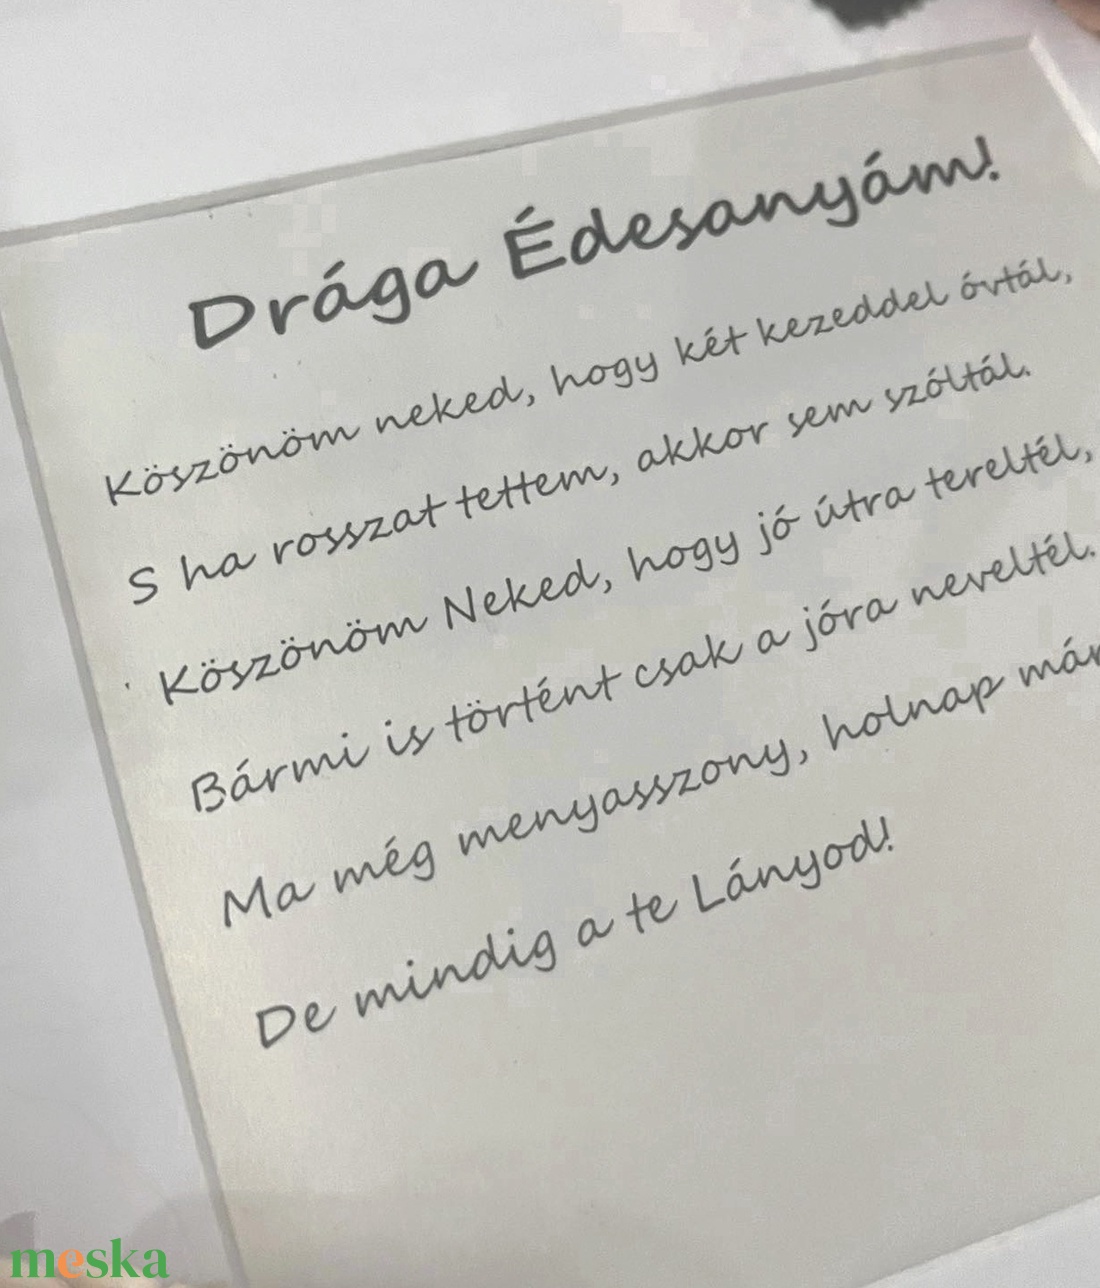 Drága Édesanyám!
Köszönöm neked, hogy két kezeddel óvtál,
S ha rosszat tettem, akkor sem szóltál.
Köszönöm Neked, hogy jó útra tereltél,
Bármi is történt csak a jóra neveltél.
Ma még menyasszony, holnap már
De mindig a te Lányod!
meska